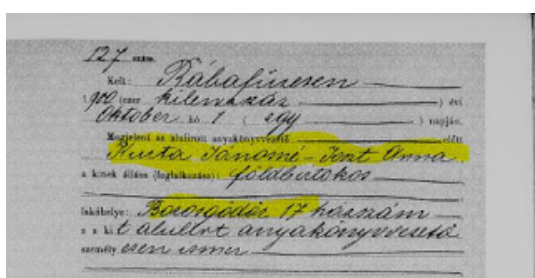 127 szám.
Kelt: Rábafüzesen
1900 (ezer kilenczáz) évi
Oktober hó 1. ( egy ) napján.
Megjelent az alulirott anyakönyvvezető előtt
Kurta Jánosné - Joszt Anna
a kinek állása (foglalkozása): földbirtokos
lakóhelye: Borosgödör 17 házszám
s a kit alulirt anyakönyvvezető
személyesen ismer